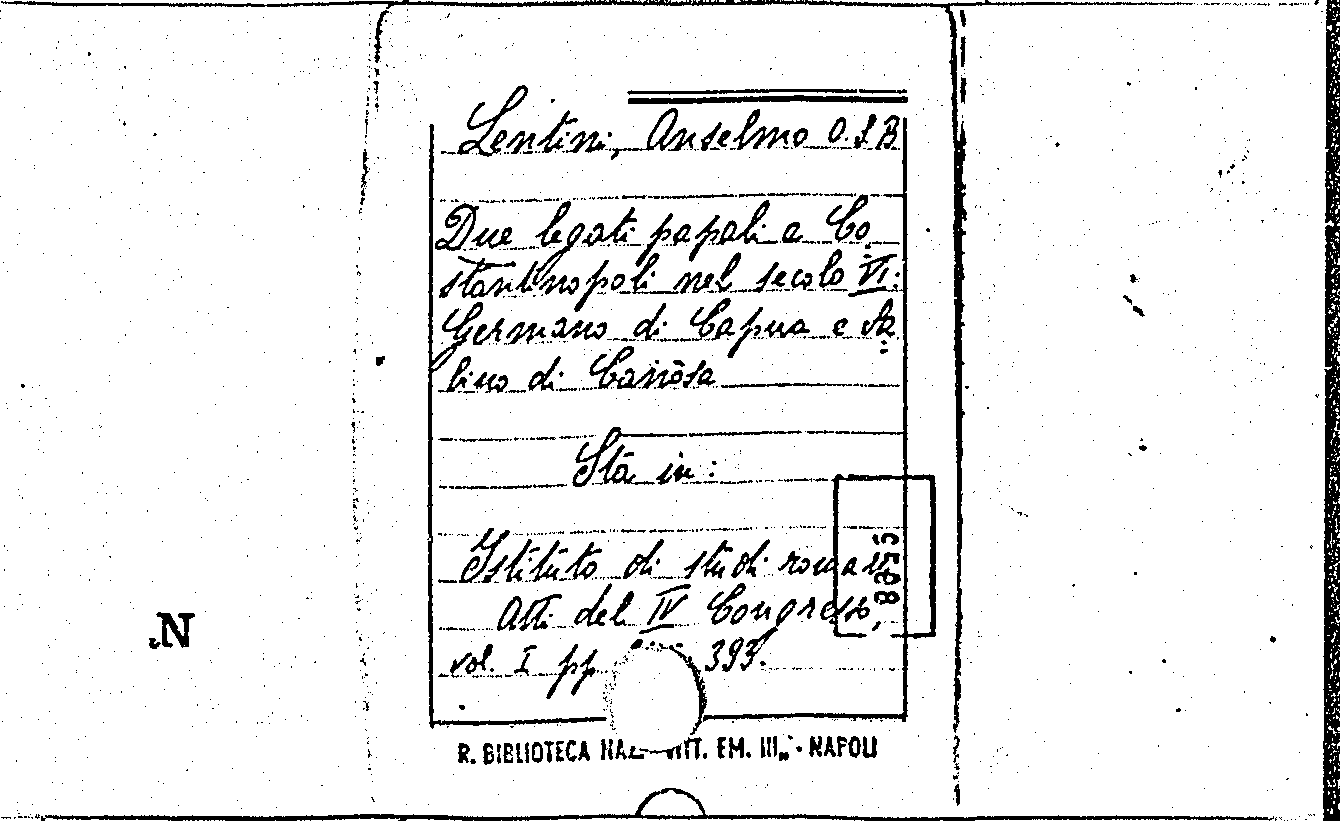 Lentini, Anselmo O.S.B
Due legati papali a Co
stantinopoli nel secolo VI:
Germano di Capua e Sa
bino di Canosa
Sta in:
Istituto di studi romani
Atti del IV Congresso,
vol. I pp 393.
8055
R. BIBLIOTECA NAZ. VITT. EM. III„ - NAPOLI
N.